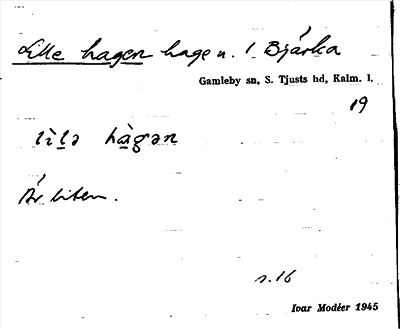 Lille hagen hage u. 1 Bjärka
Gamleby sn, S. Tjusts hd, Kalm. l.
19
lìlə hàgən
Är liten.
s. 16
Ivar Modéer 1945